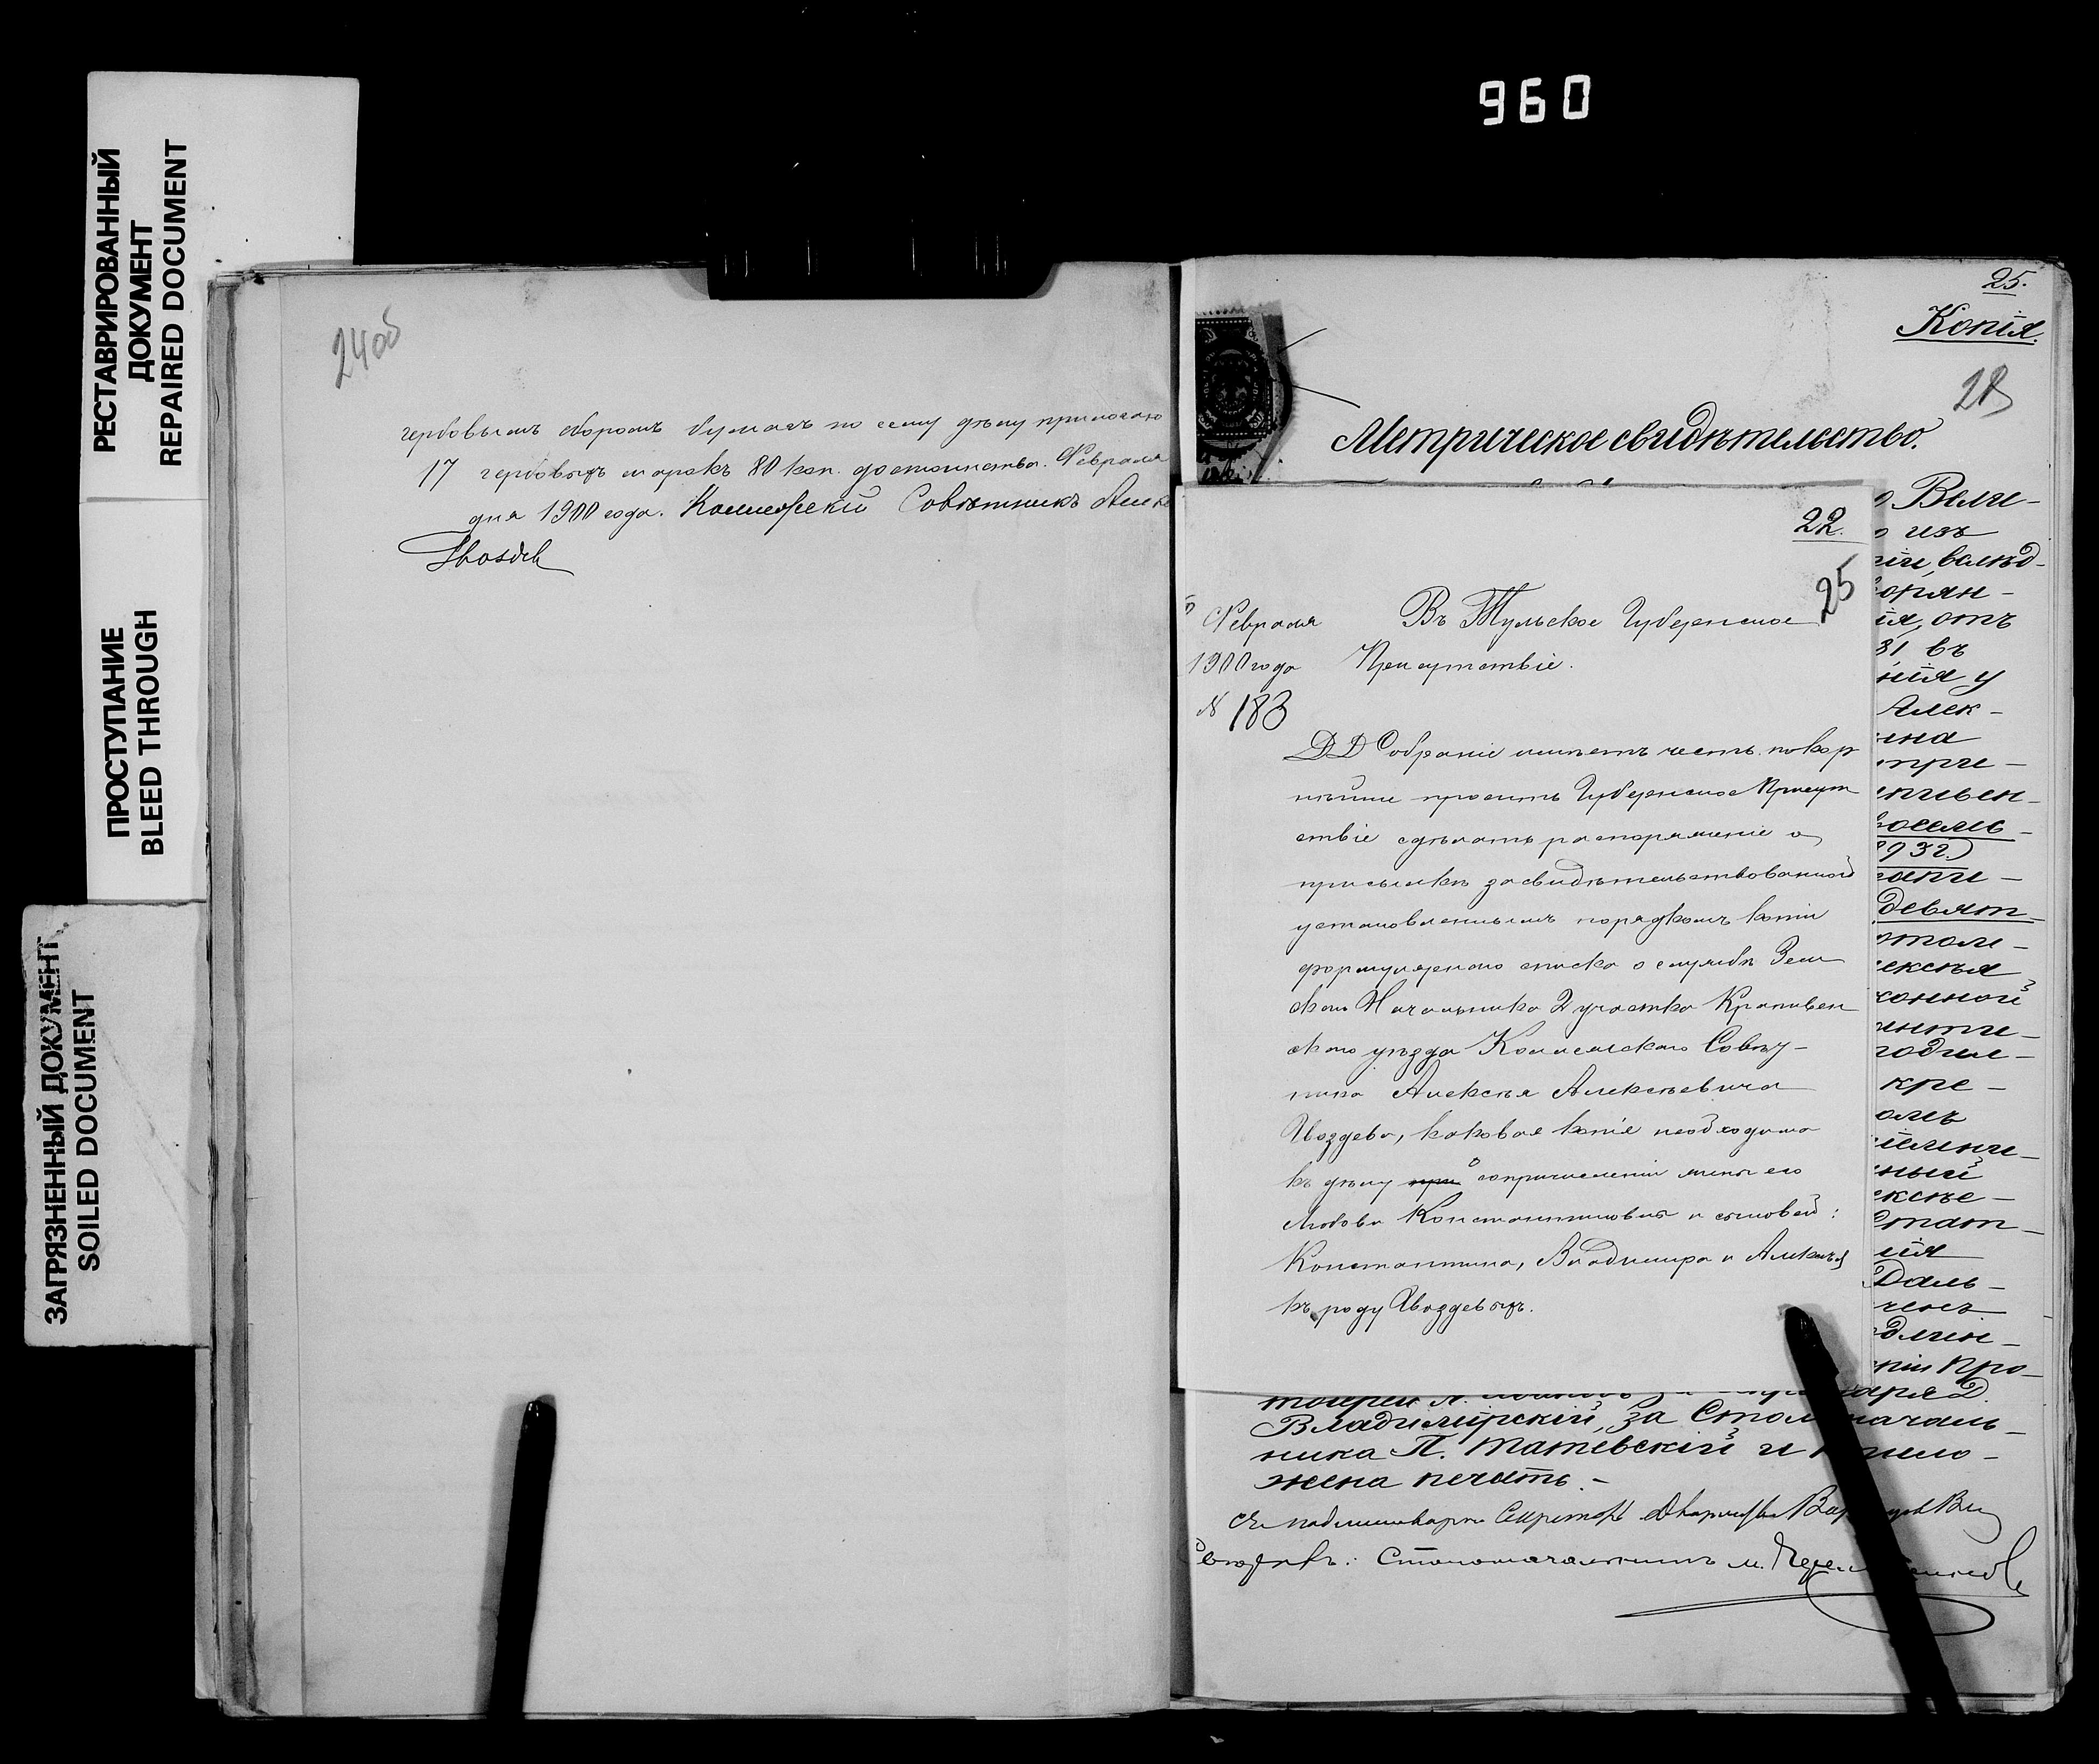 960
РЕСТАВРИРОВАННЫЙ
ДОКУМЕНТ
REPAIRED DOCUMENT
ПРОСТУПАНИЕ
BLEED THROUGH
ЗАГРЯЗНЕННЫЙ ДОКУМЕНТ
SOILED DOCUMENT
24об
гербовымъ сборомъ бумагъ по сему дѣлу прилагаю
17 гербовыхъ марокъ 80 коп. достоинства. Февраля
дня 1900 года. Коллежскій Совѣтникъ
Гвоздевъ
25.
Копія.
28
Метрическое свидѣтельство.
22.
25
Февраля
1900 года
№ 183
Въ Тульское Губернское
Присутствіе.
ДД Собраніе имѣетъ честь покор
нѣйше просить Губернское Присут
ствіе сдѣлать распоряженіе о
присылкѣ засвидѣтельствованной
установленнымъ порядкомъ копіи
формулярнаго списка о службѣ Зем
скаго Начальника 2 участка Крапивен
скаго уѣзда Коллежскаго Совѣт-
ника Алексѣя Алексѣевича
Гвоздева, каковая копія необходима
къ дѣлу при о сопричисленіи жены его
Любови Константиновны и сыновей:
Константина, Владимира и Алексѣя
къ роду Гвоздевыхъ.
Вели-
изъ
вслѣд-
орян-
ія, отъ
31 въ
нія у
Алек-
ина
три-
пивен-
восемь-
93г.)
девят-
ексѣя
конной
родил-
кре-
ный
ексѣе-
Стат-
ія
Даль-
рін Про-
Владимірскій, за Столоначаль-
ника П. Татевскій и прило-
жена печать.-
Съ подлиннымъ вѣрно: Секретарь Дворянства
Столоначальникъ